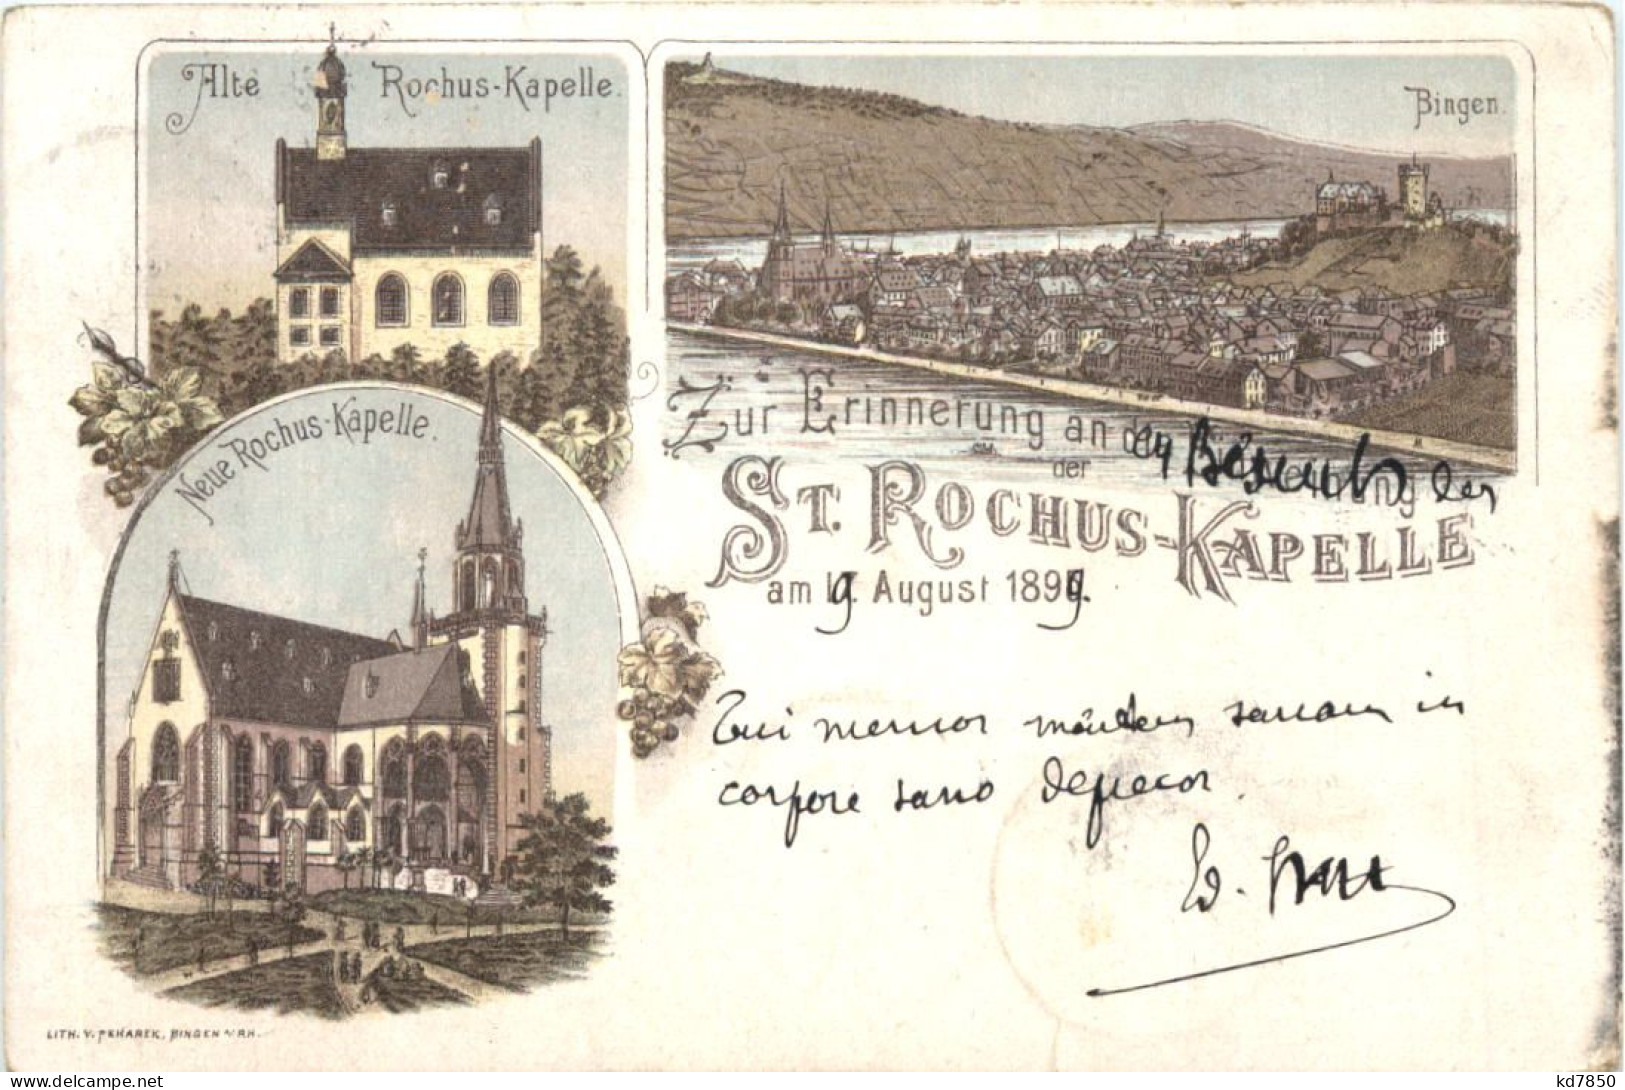 Alte Rochus-Kapelle.
Bingen.
Neue Rochus-Kapelle.
Zur Erinnerung an den Besuch der
der
ST. ROCHUS-KAPELLE
am 19. August 1899.
Tui memor sanam in
corpore sano deprecor.
Ed.
LITH. V. PEKAREK, BINGEN A/RH.
kd7850